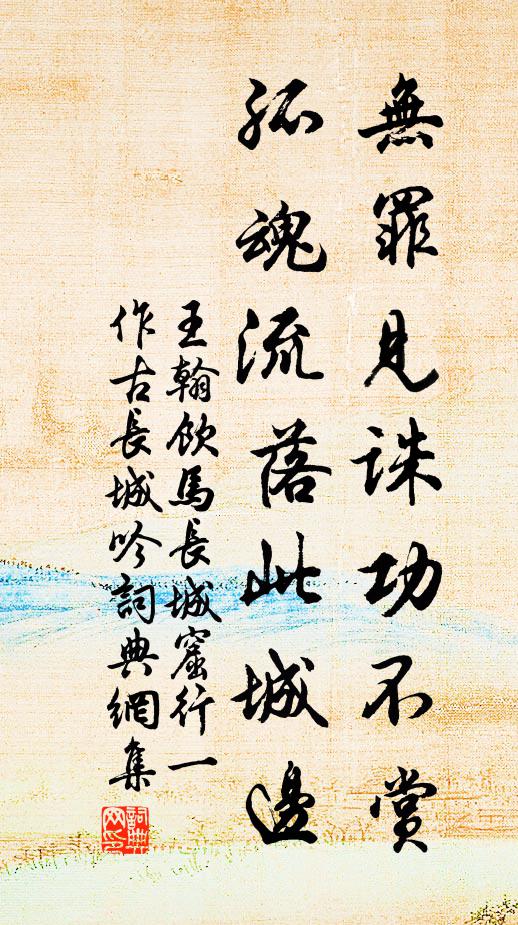 無罪見誅功不賞
孤魂流落此城邊
王翰飲馬長城窟行一
作古長城吟詞典網集
詞典
网印